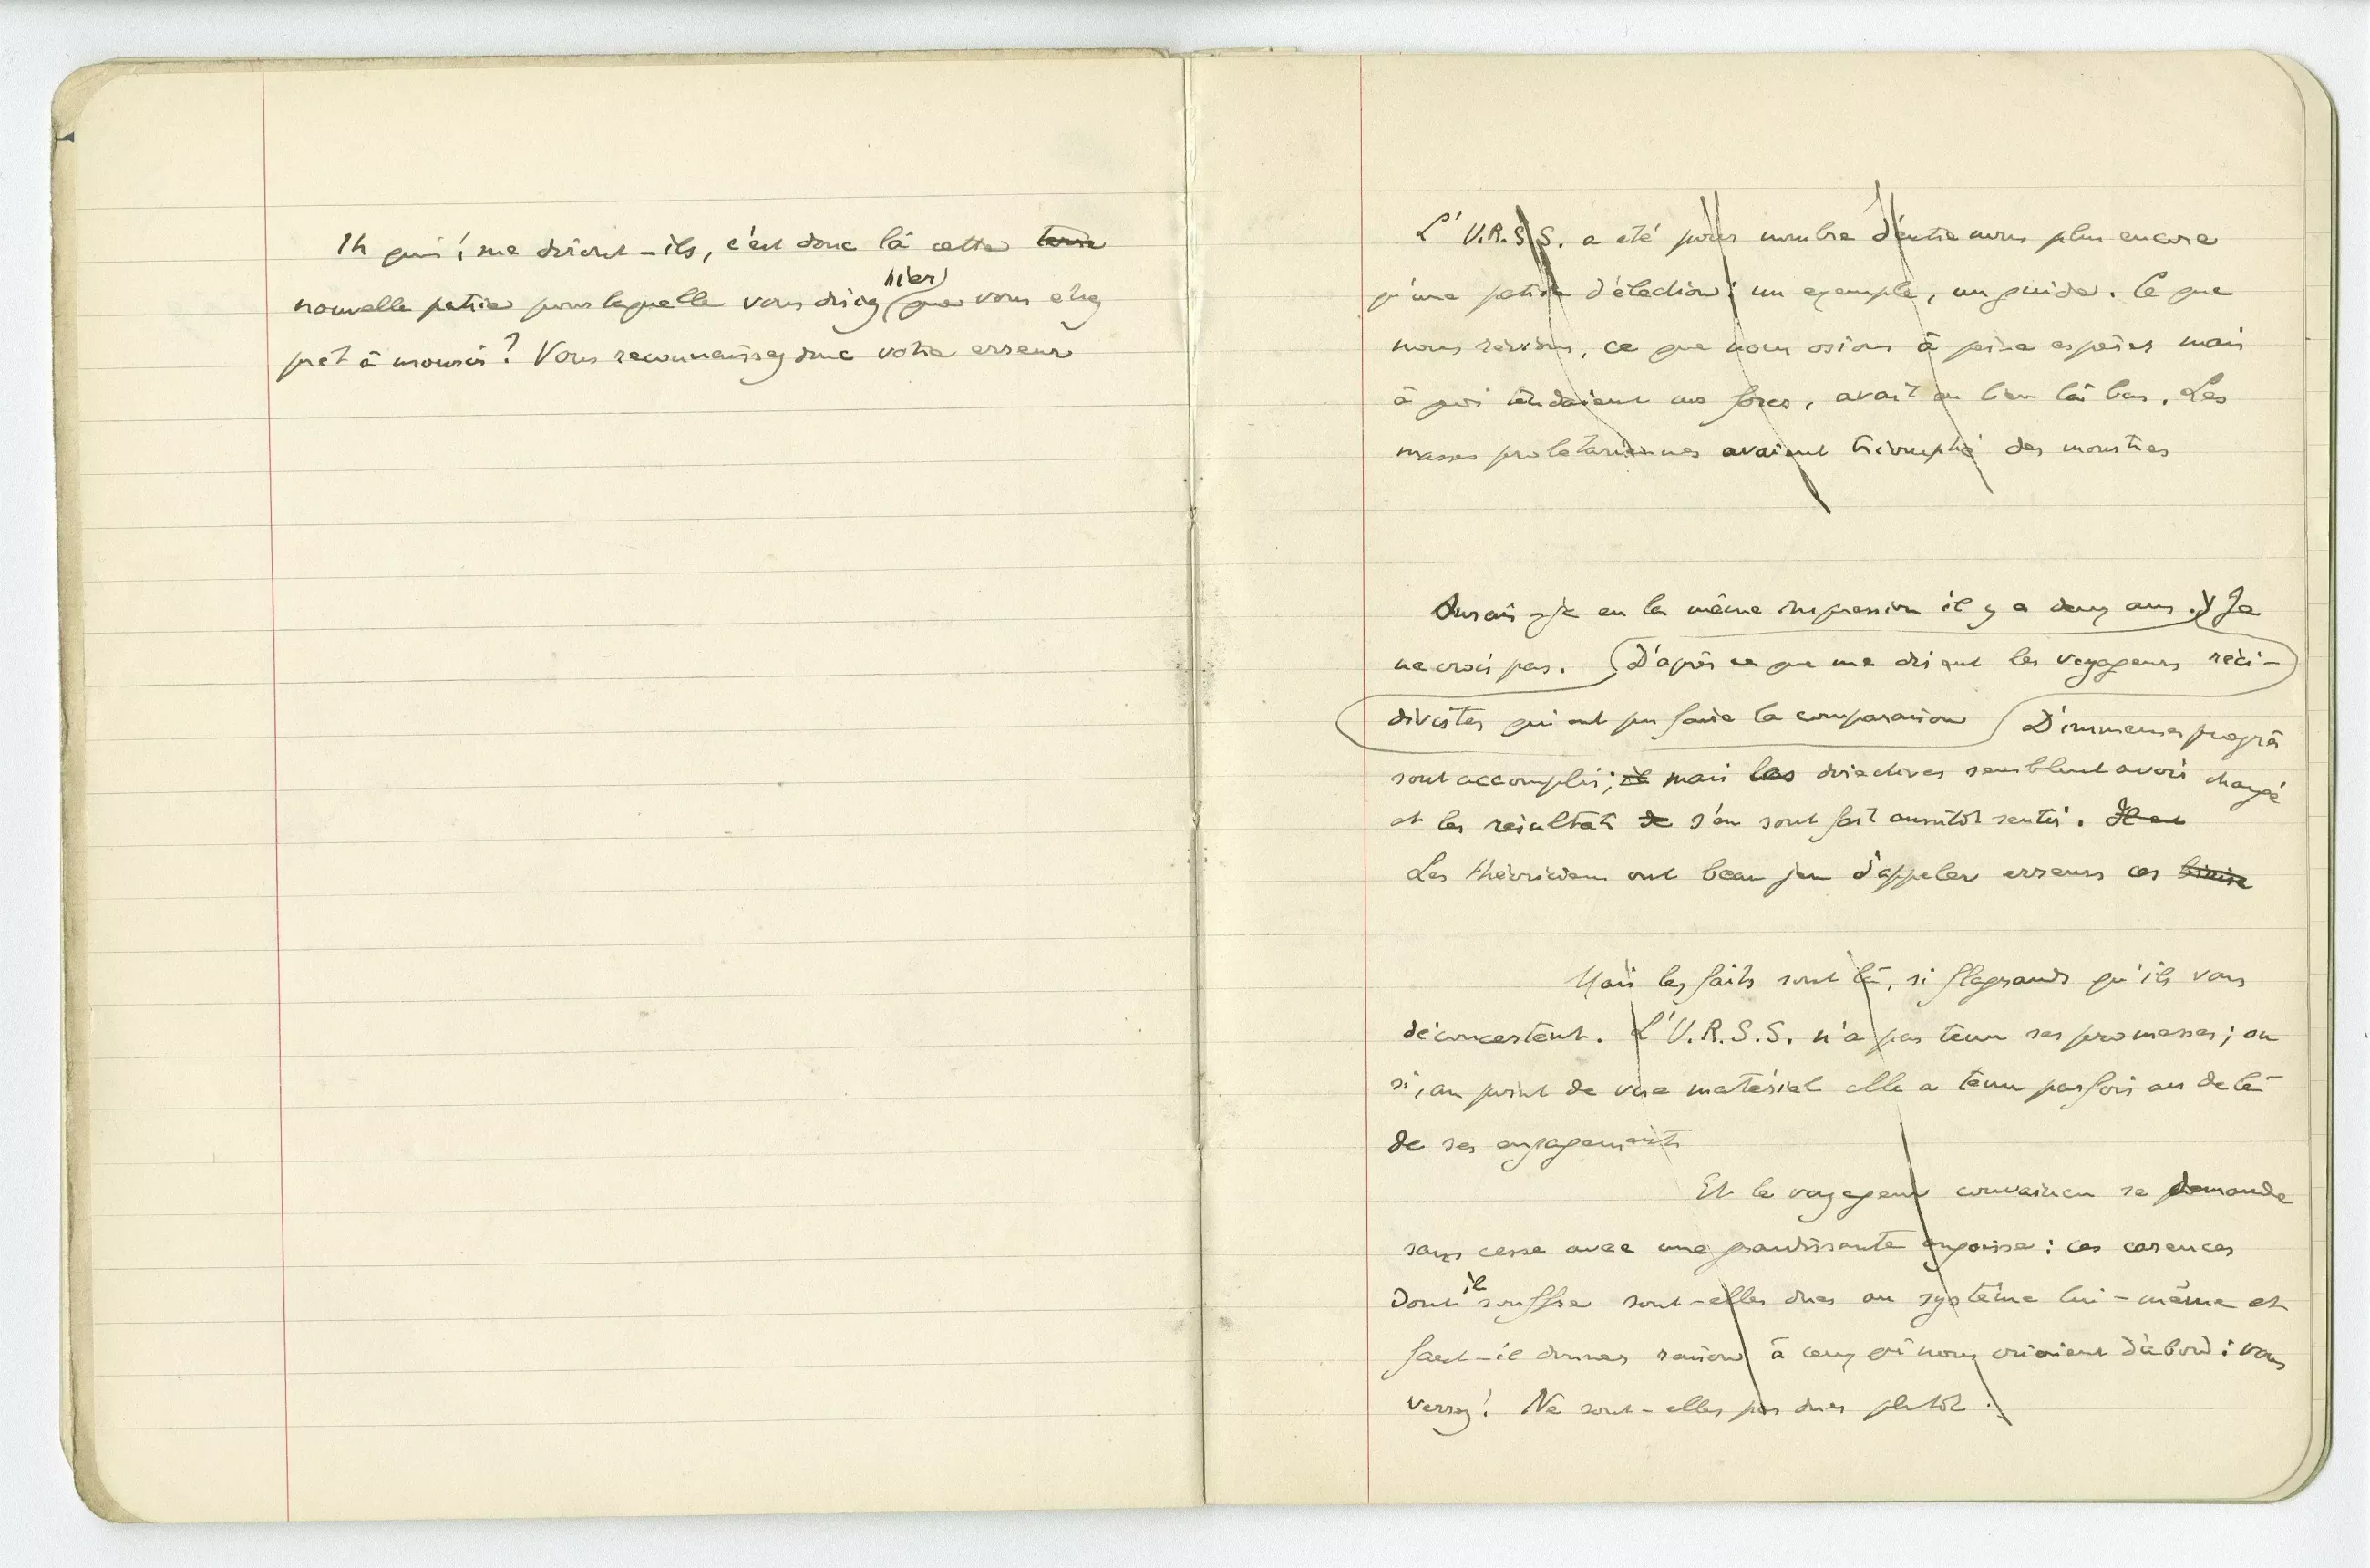 quoi ! me diront-ils, c'est donc là cette terre
hier
nouvelle patrie pour laquelle vous disiez que vous etiez
pret à mourir ? Vous reconnaissez donc votre erreur
L'U.R.S.S. a eté pour nombre d'entre nous plus encore
qu'une patrie d'élection : un exemple, un guide. Ce que
nous rêvions, ce que nous osions à peine espérer mais
à quoi tendaient nos forces, avait eu lieu là bas. Les
masses proletariennes avaient triomphé des monstres
Aurais-je eu la même impression il y a deux ans. Je
ne crois pas. D'après ce que me disent les voyageurs réci-
divistes qui ont pu faire la comparaison D'immenses progrès
sont accomplis ; mais les directives semblent avoir changé
et les résultats de s'en sont fait aussitôt sentir. Il est
Les théoriciens ont beau jeu d'appeler erreurs ces
Mais les faits sont là, si flagrants qu'ils vous
déconcertent. L'U.R.S.S. n'a pas tenu ses promesses ; ou
si, au point de vue matériel elle a tenu parfois au delà
de ses engagements
Et le voyageur convaincu se demande
sans cesse avec une grandissante angoisse : ces carences
il
dont souffre sont-elles dues au système lui-même et
faut-il donner raison à ceux qui nous criaient d'abord : vous
verrez ! Ne sont-elles pas dues plutôt.